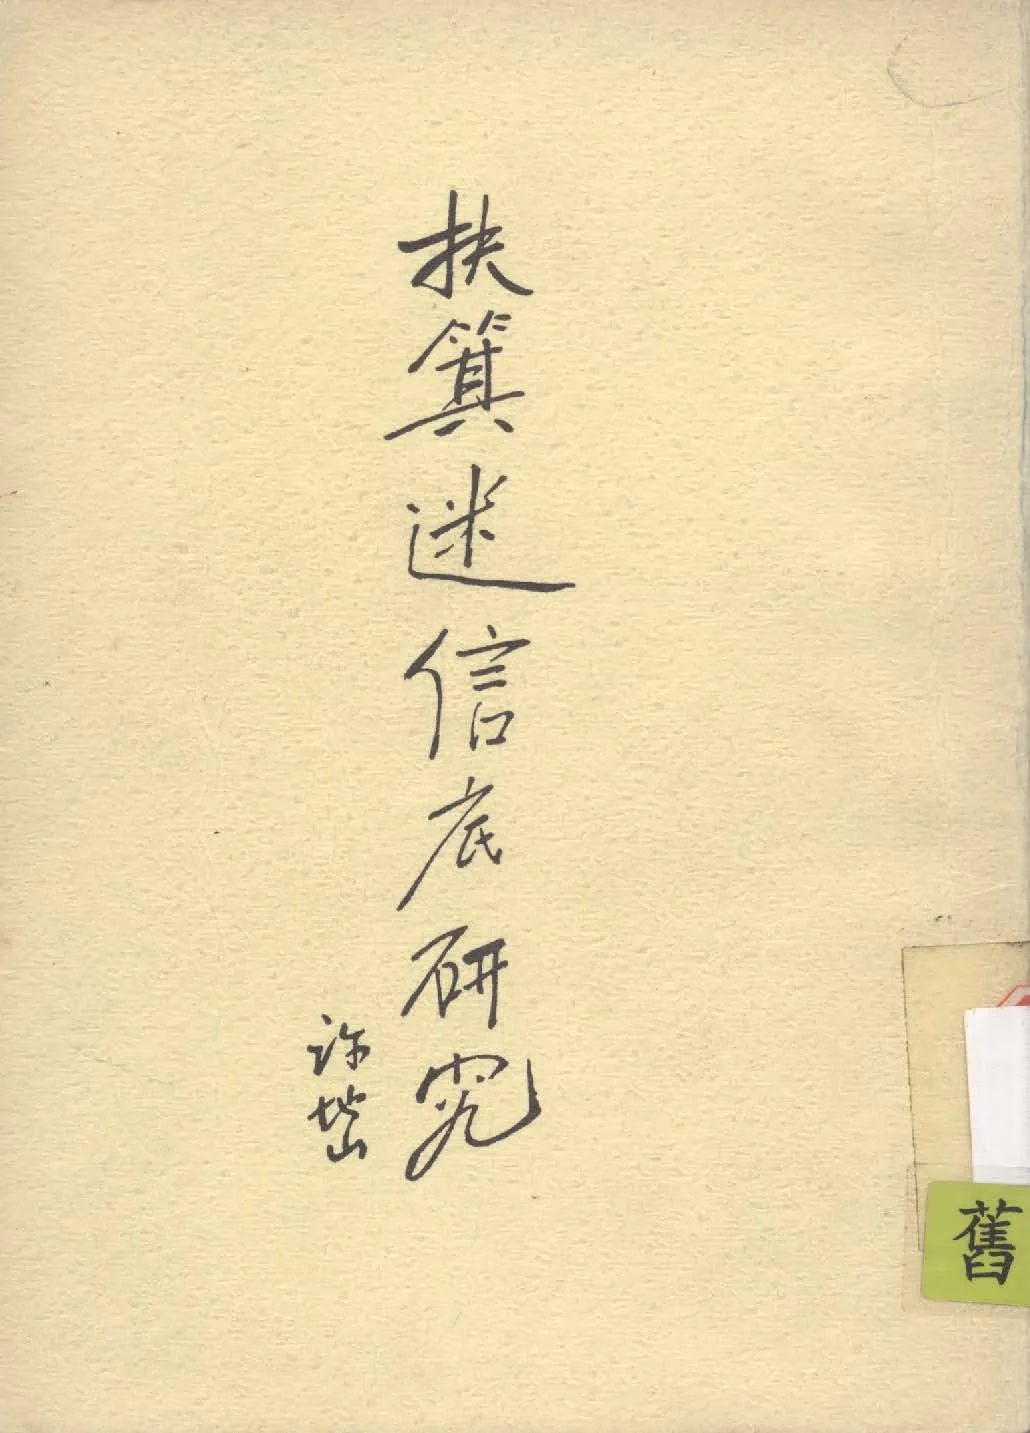 扶箕迷信底研究
許地山
舊